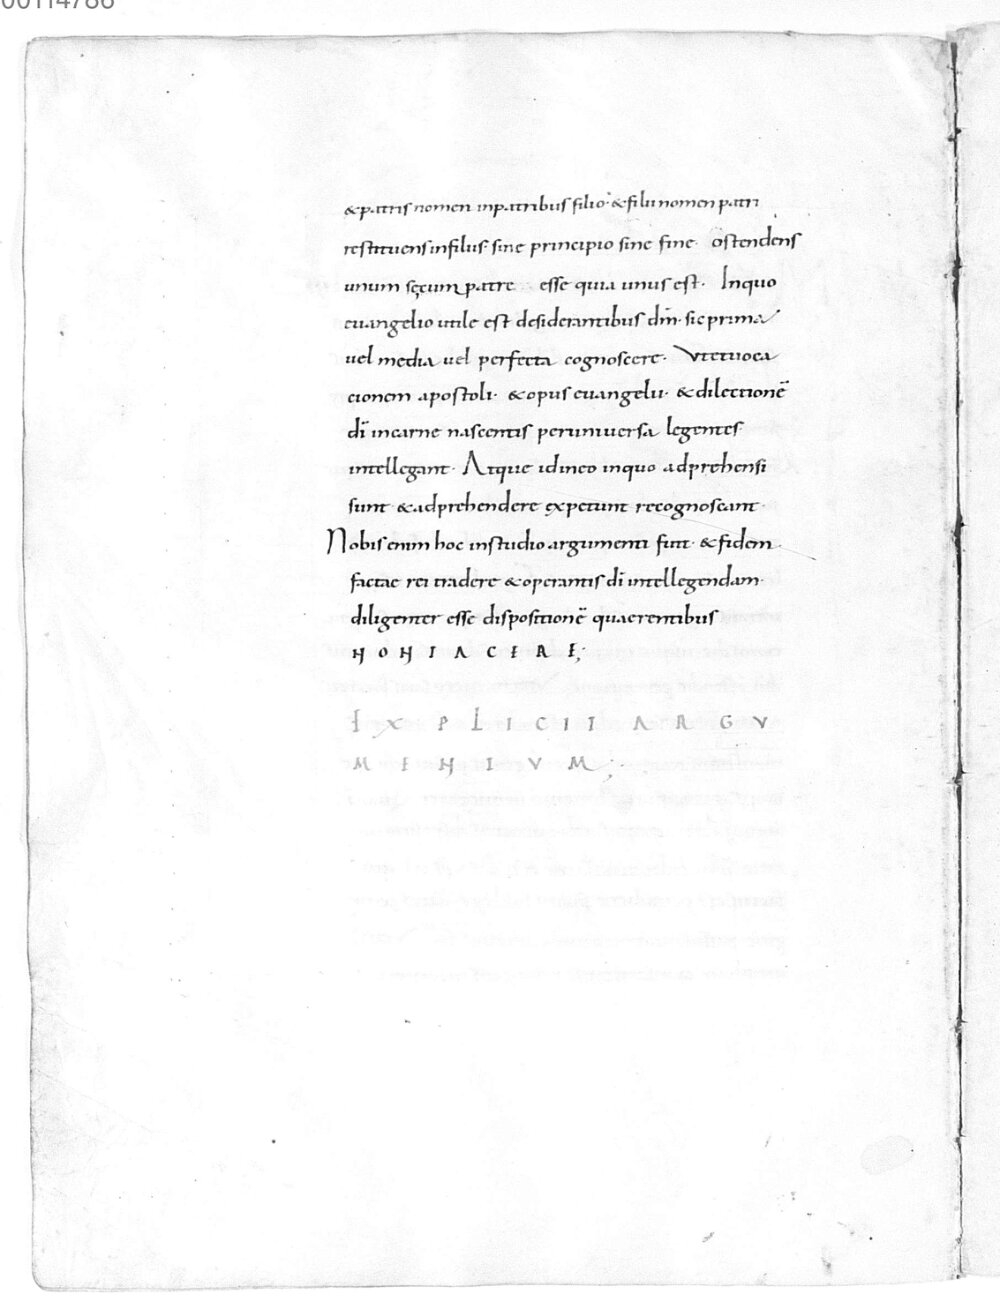 00114786
& patris nomen inpatribus filio· & filii nomen patri
restituens infiliis· sine principio sine fine· ostendens
unum secum patre esse quia unus est· Inquo
euangelio utile est desiderantibus dm̄· sic prima
uel media uel perfecta cognoscere· Vt et uoca
cionem apostoli· & opus euangelii· & dilectionē
dī incarne nascentis peruniuersa legentes
intellegant· Atque id in eo inquo adprehensi
sunt & adprehendere expetunt recognoscant·
Nobis enim hoc instudio argumenti fuit· & fidem
factae rei tradere & operantis dī intellegendam·
diligenter esse dispositionē quaerentibus
NON TACERE;
EXPLICIT ARGV
MENTVM;